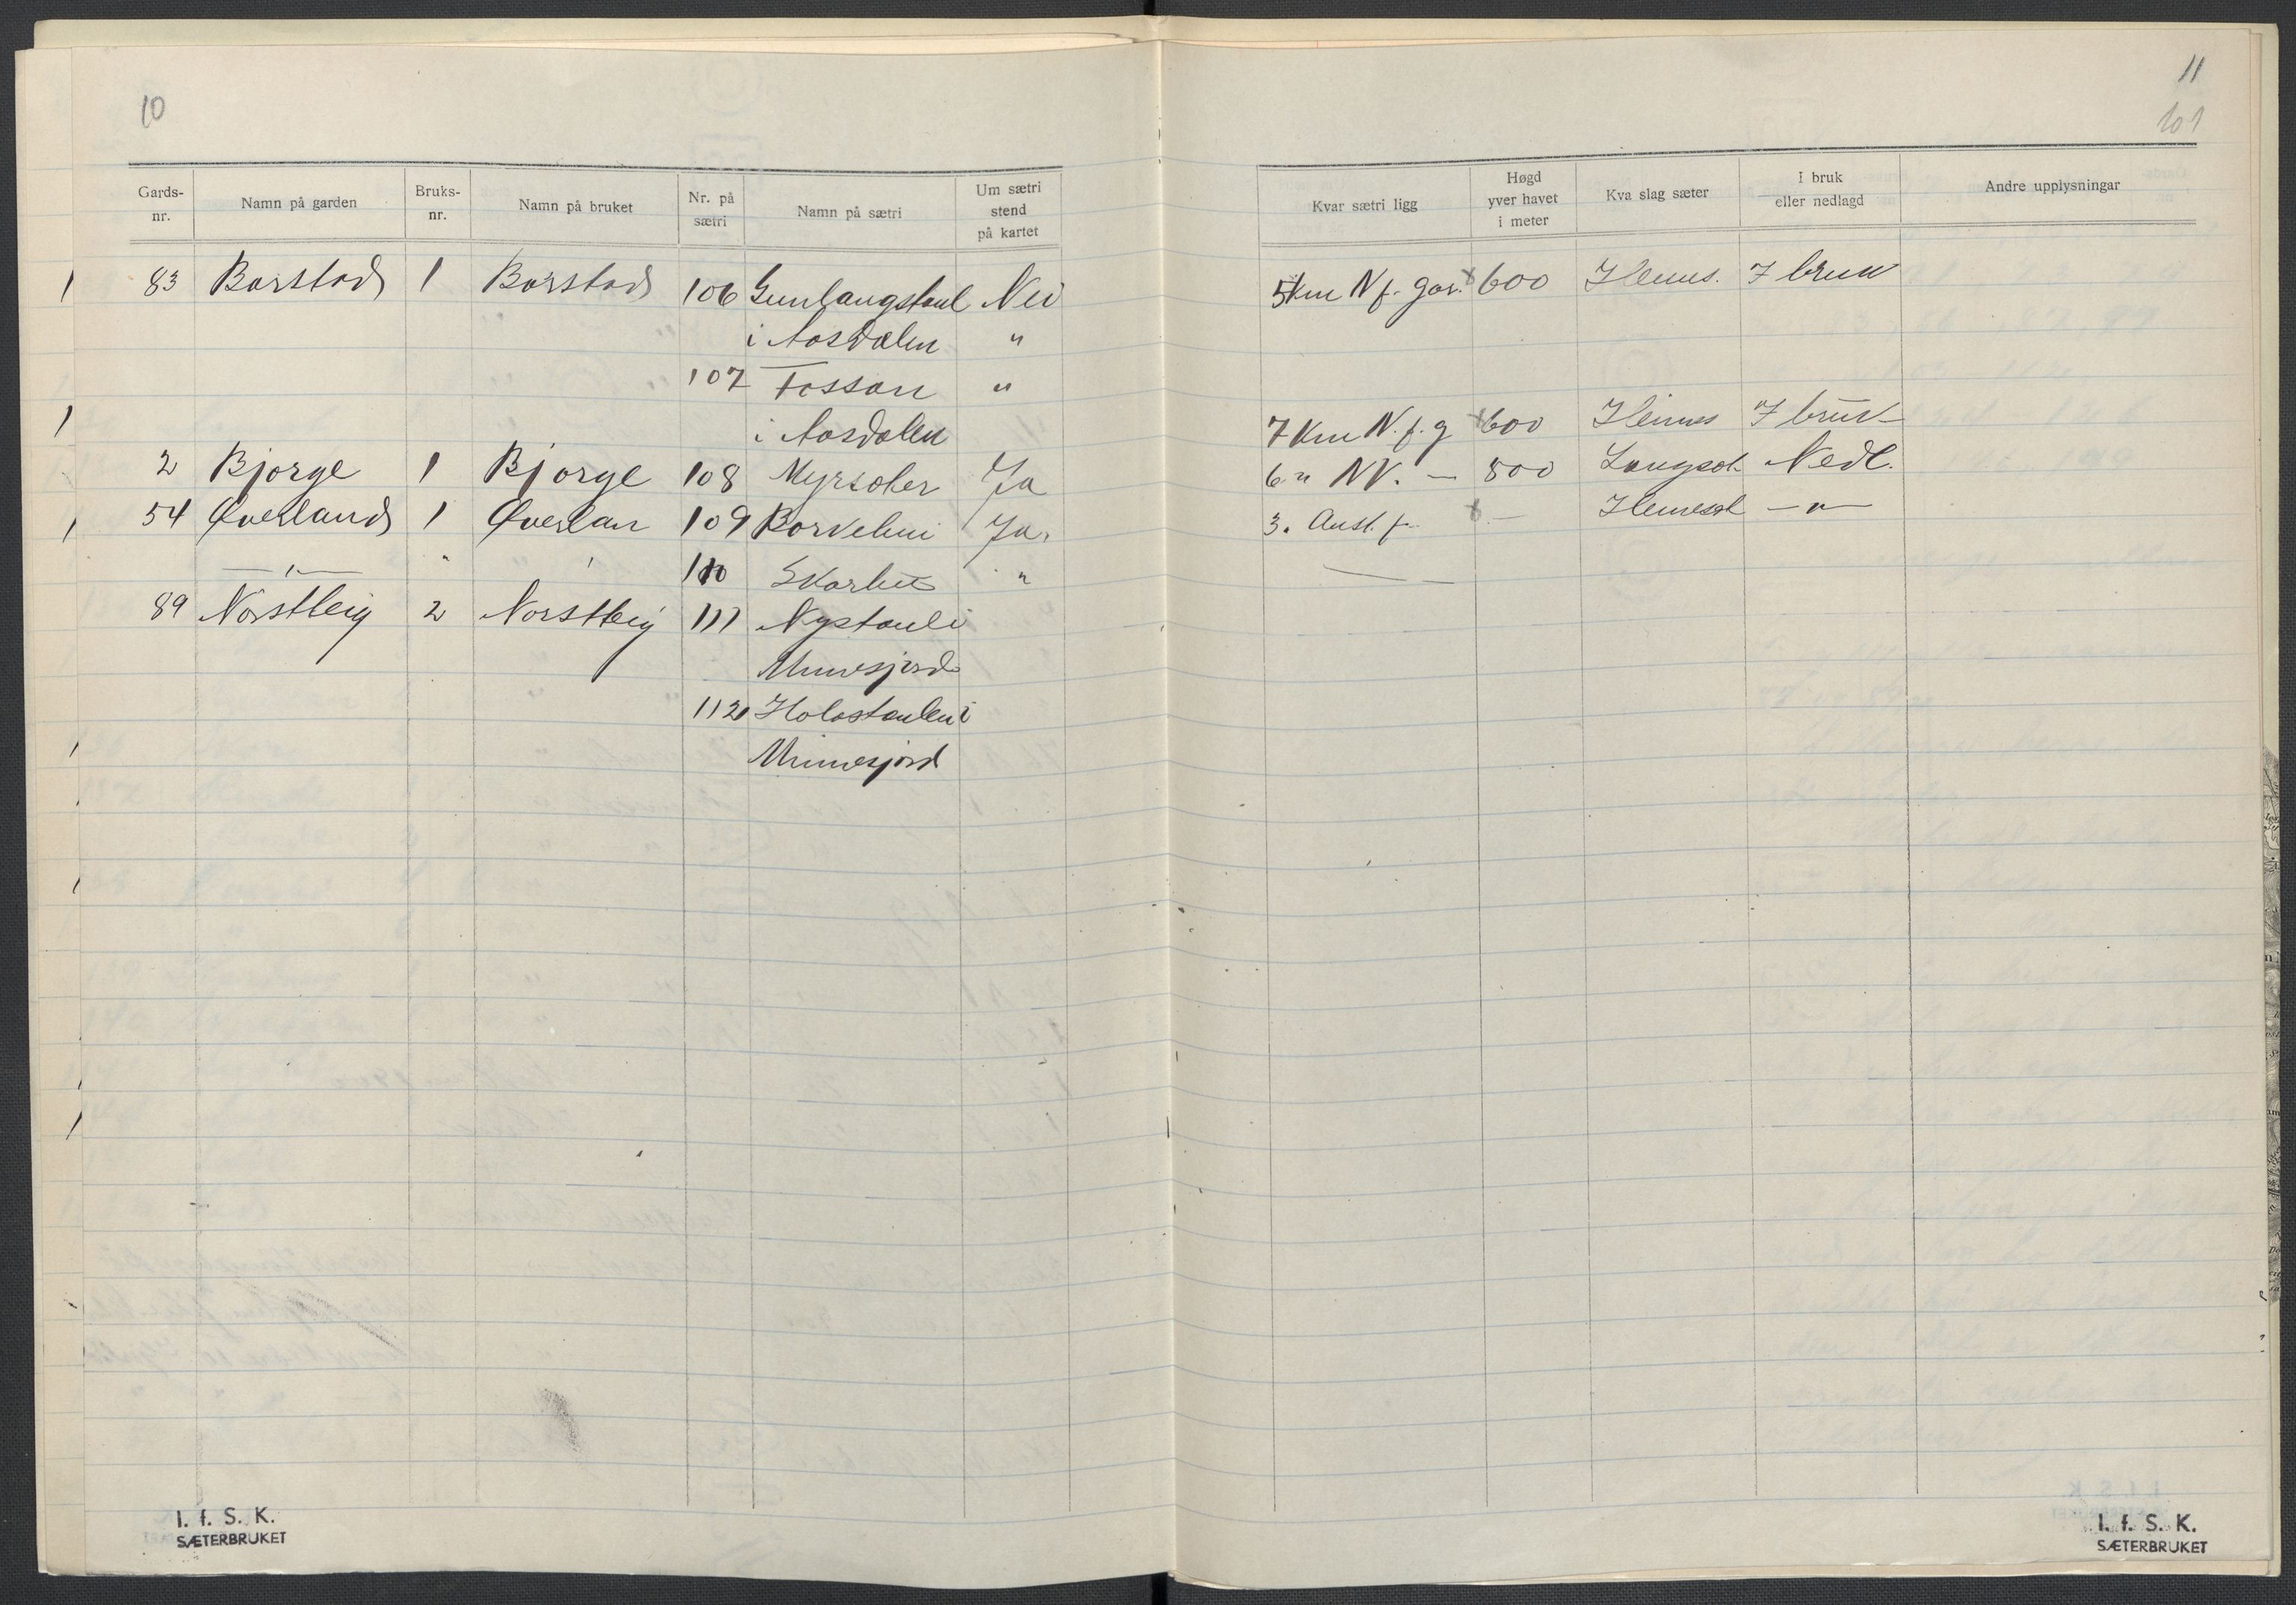 10
Gards-nr. Namn på garden Bruks-nr. Namn på bruket Nr. på sætri Namn på sætri Um sætri stend på kartet
83 Borstad 1 Borstad 106 Gunlaugstaul Nei
i Aosdalen "
107 Fossan "
i Aosdalen
2 Bjorge 1 Bjorge 108 Myrsæter Ja
54 Øverland 1 Øverlan 109 Borvehni Ja.
—"— " ' 110 Skarbu "
89 Norstbeig 2 Norstbeig 111 Nystaul i
Munesjord
112 Holostaulen i
Munesjord
I. f. S. K.
SÆTERBRUKET
11
101
Kvar sætri ligg Høgd yver havet i meter Kva slag sæter I bruk eller nedlagd Andre upplysningar
5 Km N f. gar. x 600 Heims. I bruk
7 Km N. f. g x 600 Heimes I bruk
6 " NV. — 800 Langsæt. Nedl.
3. Aust. f. x — Heimesæt —"—
— —
I. f. S. K.
SÆTERBRUKET